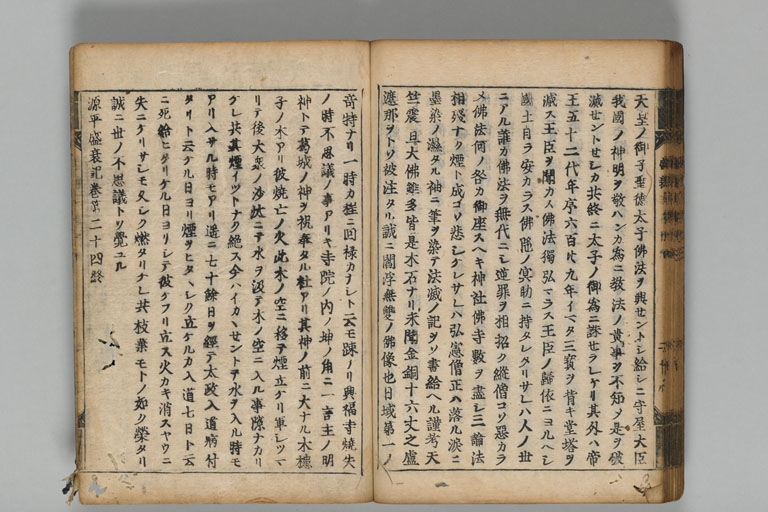 天皇ノ御子聖徳太子佛法ヲ興セントシ給シニ守屋大臣
我國ノ神明ヲ敬ハンカ為ニ教法ノ貴事ヲ不知タ是ヲ破
滅セントセシカ共終ニ太子ノ御為ニ誅セラレケリ其外ハ帝
王五十二代年序六百廿九年イマタ三寳ヲ背キ堂塔ヲ
滅ス王臣ヲ聞カス佛法獨弘マラス王臣ノ歸依ニヨルヘシ
國土自ラ安カラス佛陀ノ冥助ニ持タレタリサレハ人ノ世
ニアル誰カ佛法ヲ無代ニシ逆罪ヲ相招ク縦僧コソ惡カラ
メ佛法何ノ咎カ御座スヘキ神社佛寺數ヲ盡シ三論法
相残ナク煙ト成コソ悲シケレサレハ弘憲僧正ハ落ル涙ニ
墨染ノ濕タル袖ニ筆ヲ染テ法滅ノ記ヲソ書給ヘル謹考天
竺震旦大佛雖多皆是木石ナリ未聞金銅十六丈之盧
遮那ヲトソ被注タル誠ニ閻浮無雙ノ佛像也日域第一ノ
奇特ナリ一時カ程ニ回禄カナシト云モ疎ノリ興福寺焼失
ノ時不思議ノ事アリキ寺院ノ内ノ坤ノ角ニ一言主ノ明
神トテ葛城ノ神ヲ祝奉タル社アリ其神ノ前ニ大ナル木槵
子ノ木アリ彼焼亡ノ火此木ノ空ニ移テ煙立ケリ軍シツマ
リテ後大衆ノ沙汰ニテ水ヲ汲テ木ノ空ニ入ル事隙ナカリ
ケレ共其煙イツトナク絶ス今ハイカヽセントテ水ヲ入ル時モ
アリ入サル時モアリ遥ニ七十餘日ヲ經テ太政入道病付
タリト云ケル日ヨリ煙ヲヒタヽシク立ケルカ入道七日ト云
ニ死給ヒタリケル日ヨリシテ彼ケフリ立ス火カキ消スヤウニ
失ニケリサレモ久シク燃タリケレ共枝葉モトノ如ク榮タリ
誠ニ世ノ不思議トソ覺ユル
源平盛衰記巻第二十四終